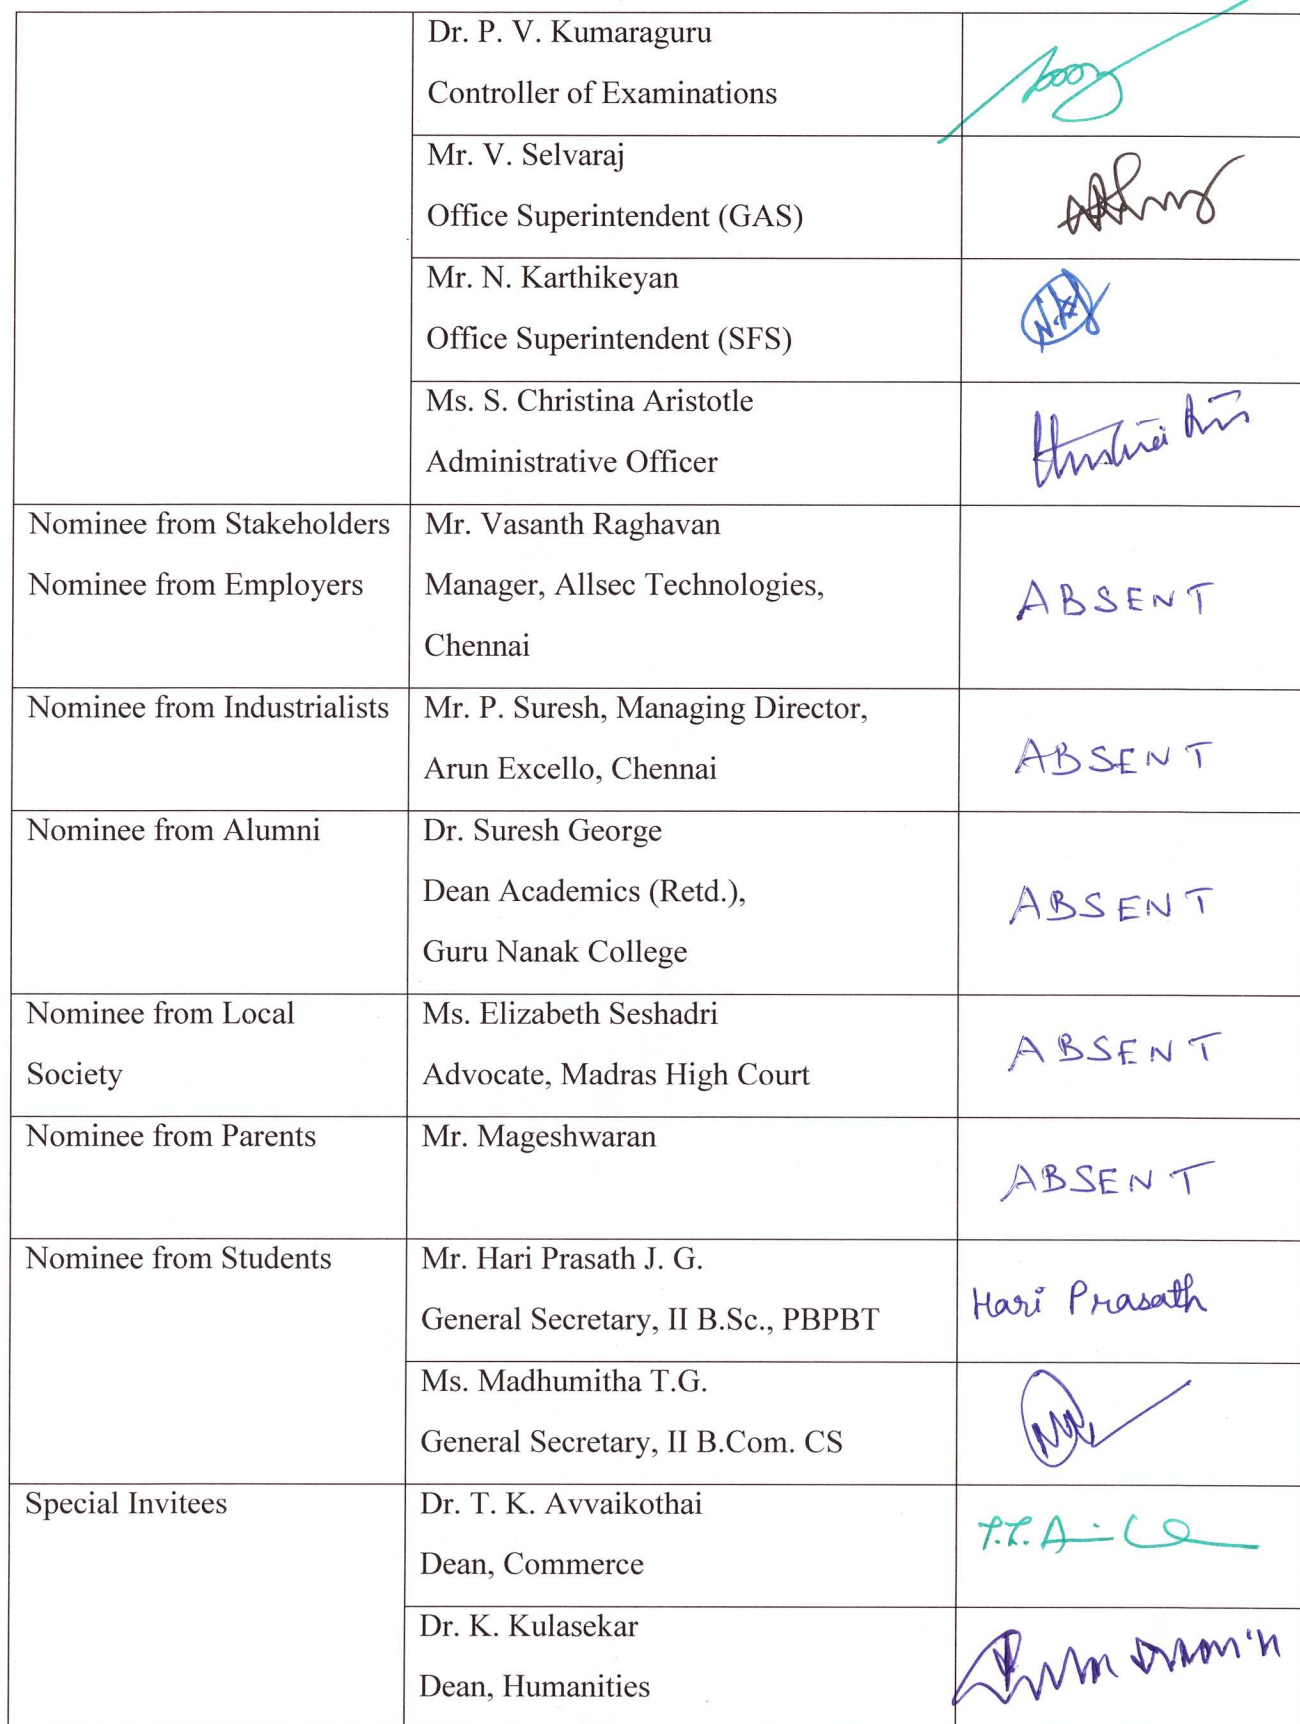 Dr. P. V. Kumaraguru
Controller of Examinations
Mr. V. Selvaraj
Office Superintendent (GAS)
Mr. N. Karthikeyan
Office Superintendent (SFS)
Ms. S. Christina Aristotle
Administrative Officer
Nominee from Stakeholders
Nominee from Employers
Mr. Vasanth Raghavan
Manager, Allsec Technologies,
Chennai
ABSENT
Nominee from Industrialists
Mr. P. Suresh, Managing Director,
Arun Excello, Chennai
ABSENT
Nominee from Alumni
Dr. Suresh George
Dean Academics (Retd.),
Guru Nanak College
ABSENT
Nominee from Local
Society
Ms. Elizabeth Seshadri
Advocate, Madras High Court
ABSENT
Nominee from Parents
Mr. Mageshwaran
ABSENT
Nominee from Students
Mr. Hari Prasath J. G.
General Secretary, II B.Sc., PBPBT
Hari Prasath
Ms. Madhumitha T.G.
General Secretary, II B.Com. CS
Special Invitees
Dr. T. K. Avvaikothai
Dean, Commerce
Dr. K. Kulasekar
Dean, Humanities